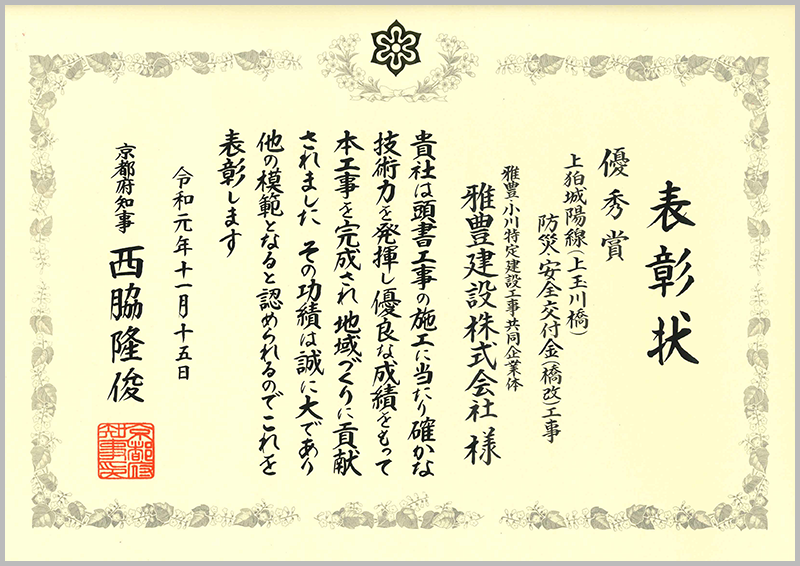 表彰状
優秀賞
上狛城陽線(上玉川橋)
防災・安全交付金(橋改)工事
雅豊・小川特定建設工事共同企業体
雅豊建設株式会社 様
貴社は頭書工事の施工に当たり確かな
技術力を発揮し優良な成績をもって
本工事を完成され 地域づくりに貢献
されました その功績は誠に大であり
他の模範となると認められるのでこれを
表彰します
令和元年十一月十五日
京都府知事 西脇隆俊
京都府
知事印